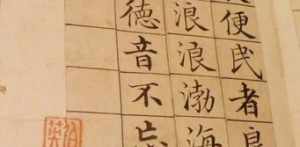 便民者
浪浪渤海
德音不忘